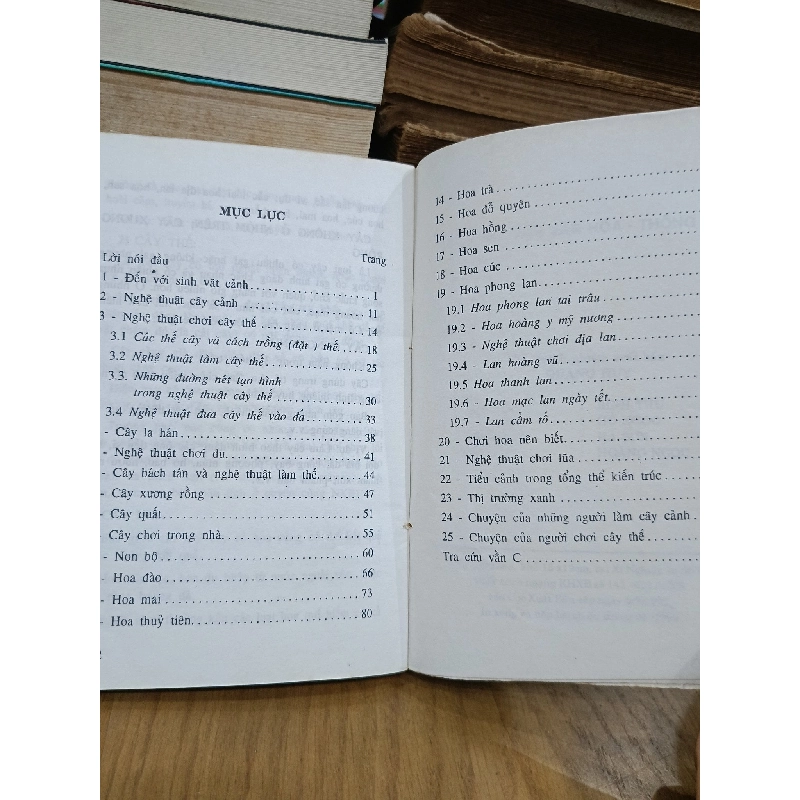 MỤC LỤC
Lời nói đầu Trang
1 - Đến với sinh vật cảnh 1
2 - Nghệ thuật cây cảnh 11
3 - Nghệ thuật chơi cây thế 14
3.1 Các thế cây và cách trồng (đặt) thế 18
3.2 Nghệ thuật làm cây thế 25
3.3. Những đường nét tạo hình
trong nghệ thuật cây thế 30
3.4 Nghệ thuật đưa cây thế vào đá 33
- Cây la hán 38
- Nghệ thuật chơi đu 41
- Cây bách tán và nghệ thuật làm thế 44
- Cây xương rồng 47
- Cây quất 51
Cây chơi trong nhà 55
- Non bộ 60
- Hoa đào 66
- Hoa mai 73
- Hoa thuỷ tiên 80
14 - Hoa trà
15 - Hoa đỗ quyên
16 - Hoa hồng
17 - Hoa sen
18 - Hoa cúc
19 - Hoa phong lan
19.1 Hoa phong lan tai trâu
19.2 - Hoa hoàng y mỹ nương
19.3 - Nghệ thuật chơi địa lan
19.4 - Lan hoàng vũ
19.5 Hoa thanh lan
19.6 - Hoa mạc lan ngày tết
19.7 - Lan cẩm tố
20 - Chơi hoa nên biết
21 Nghệ thuật chơi lũa
22 - Tiểu cảnh trong tổng thể kiến trúc
23 - Thị trường xanh
24 - Chuyện của những người làm cây cảnh
25 - Chuyện của người chơi cây thế
Tra cứu vần C